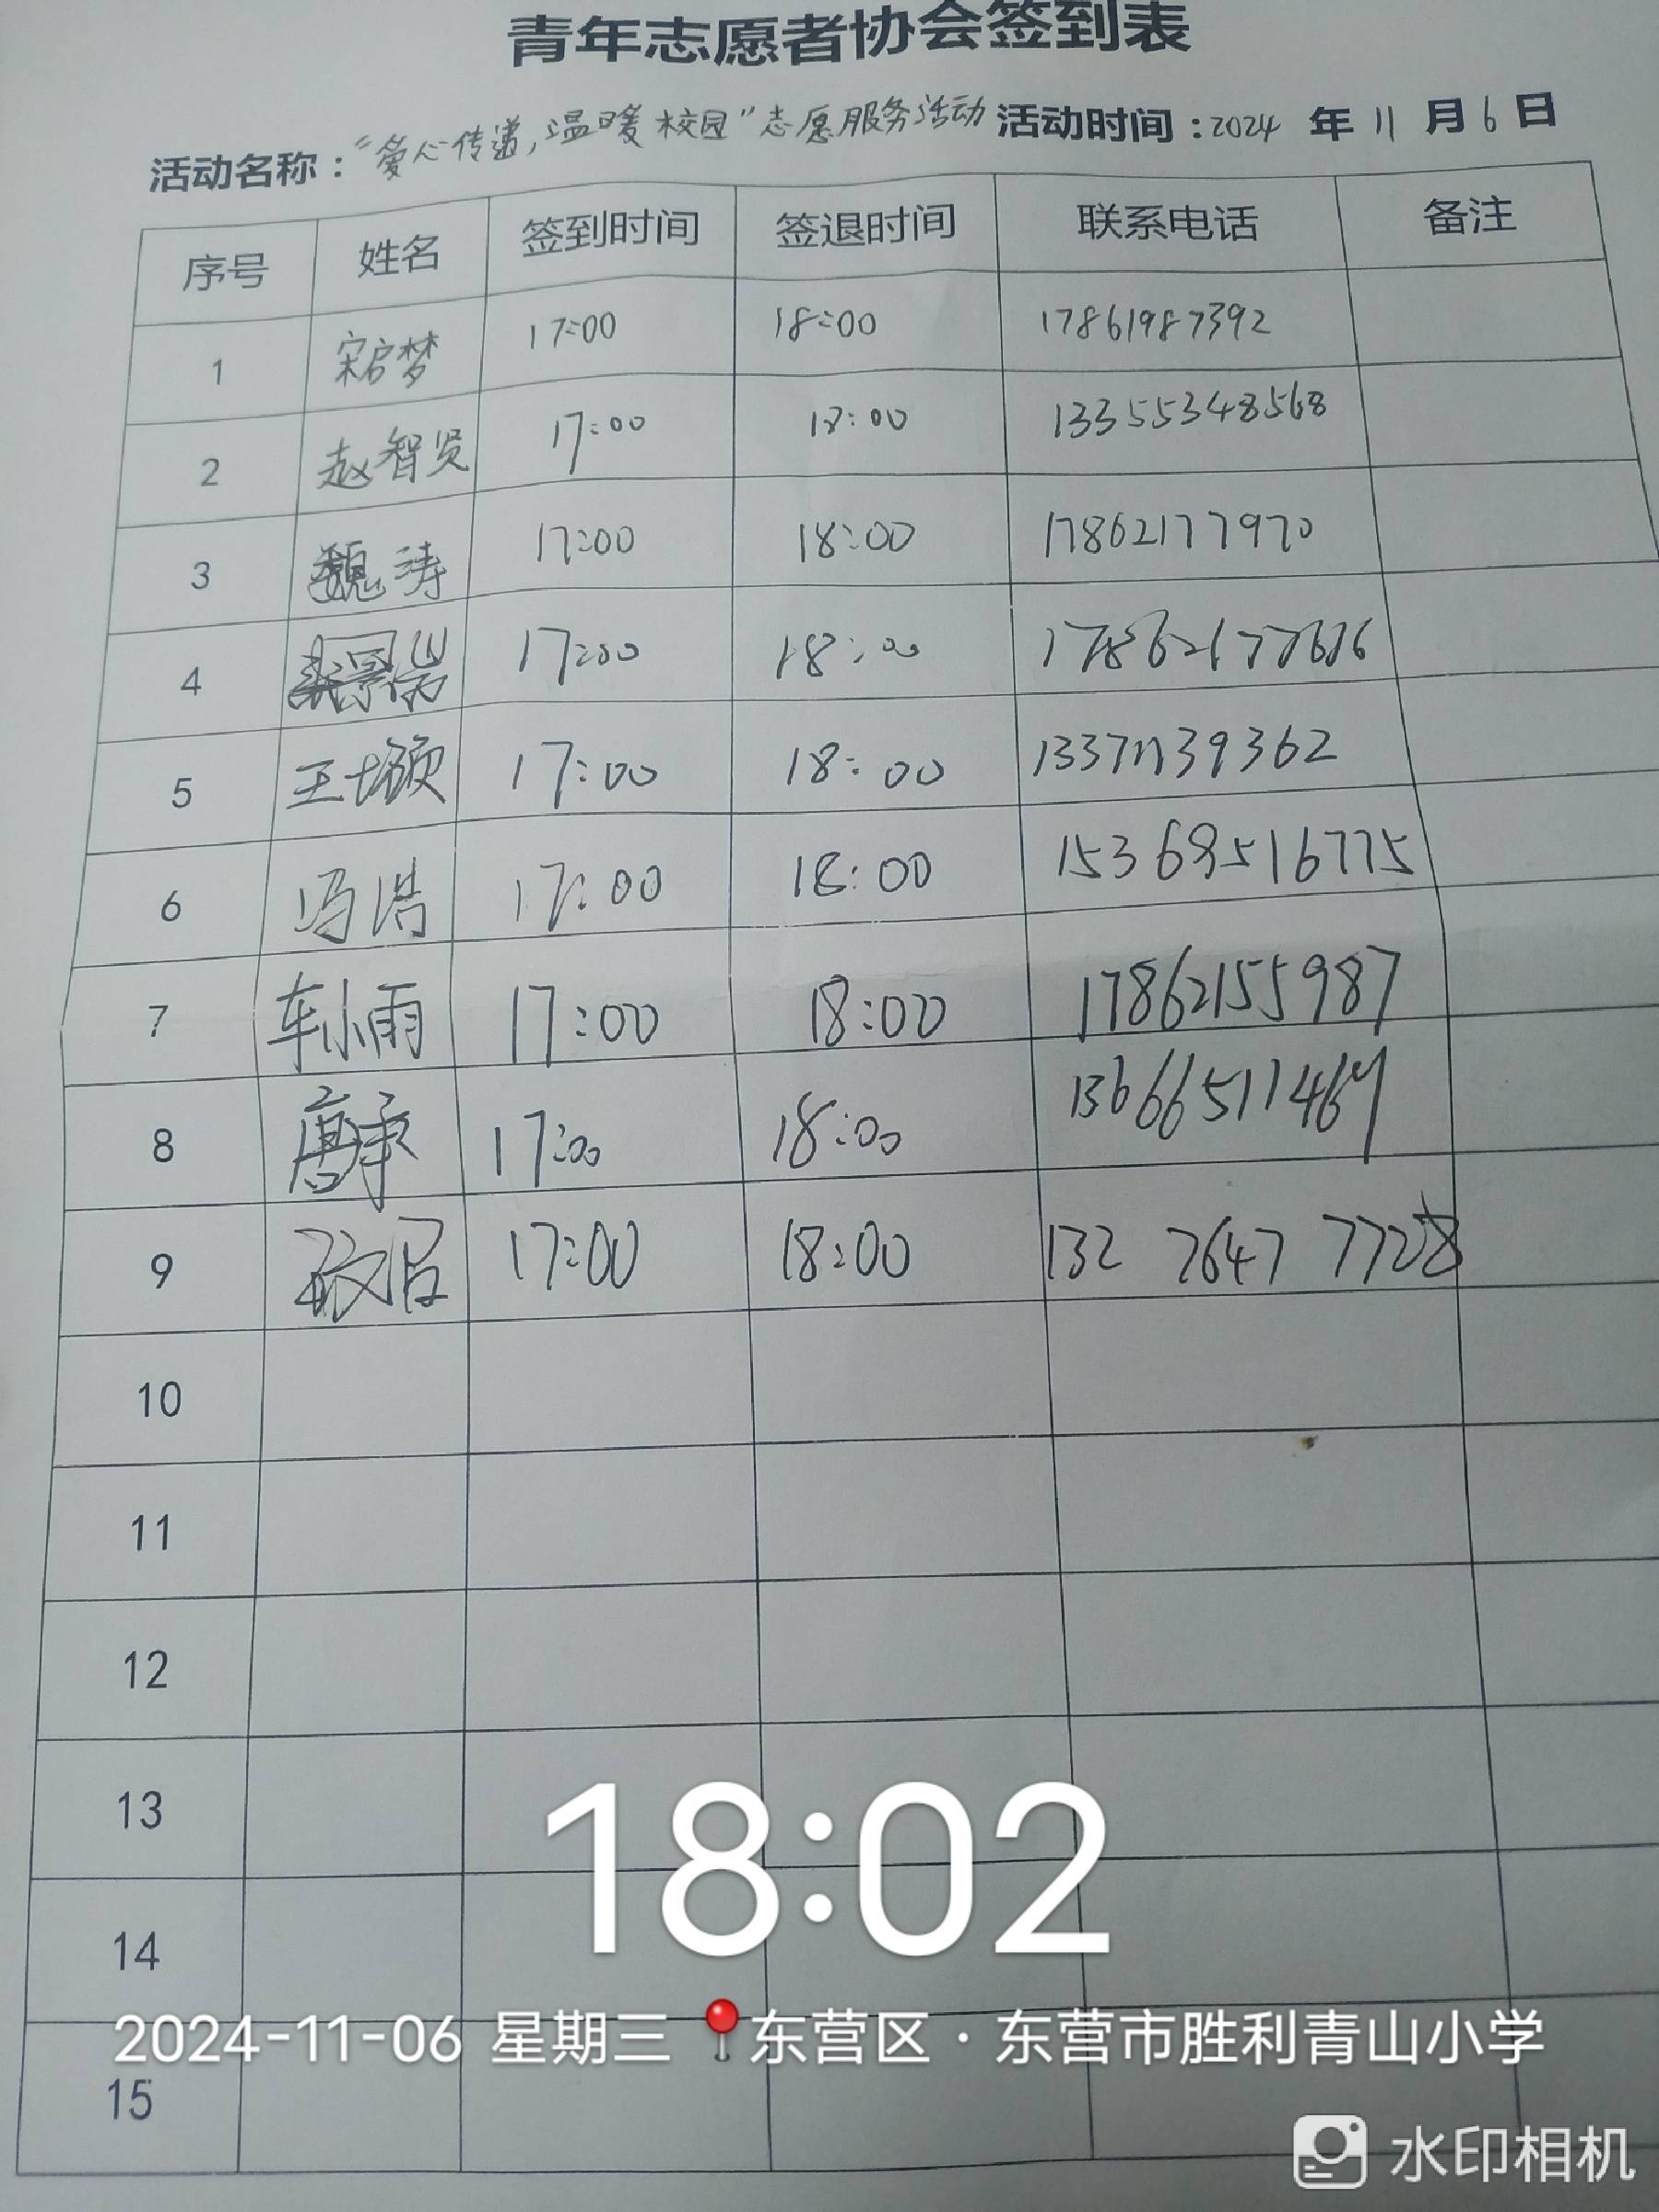 青年志愿者协会签到表
活动名称："爱心传递,温暖校园"志愿服务活动 活动时间：2024 年 11 月 6 日
序号 姓名 签到时间 签退时间 联系电话 备注
1 宋启梦 17:00 18:00 17861987392
2 赵智贤 17:00 18:00 13355348568
3 魏涛 17:00 18:00 17862177970
4 17:00 18:00 17862177676
5 王 17:00 18:00 13371139362
6 冯浩 17:00 18:00 15369516775
7 车小雨 17:00 18:00 17862155987
8 唐 17:00 18:00
9 17:00 18:00 132 7647 7728
10
11
12
13
18:02
14
2024-11-06 星期三 东营区·东营市胜利青山小学
15
水印相机